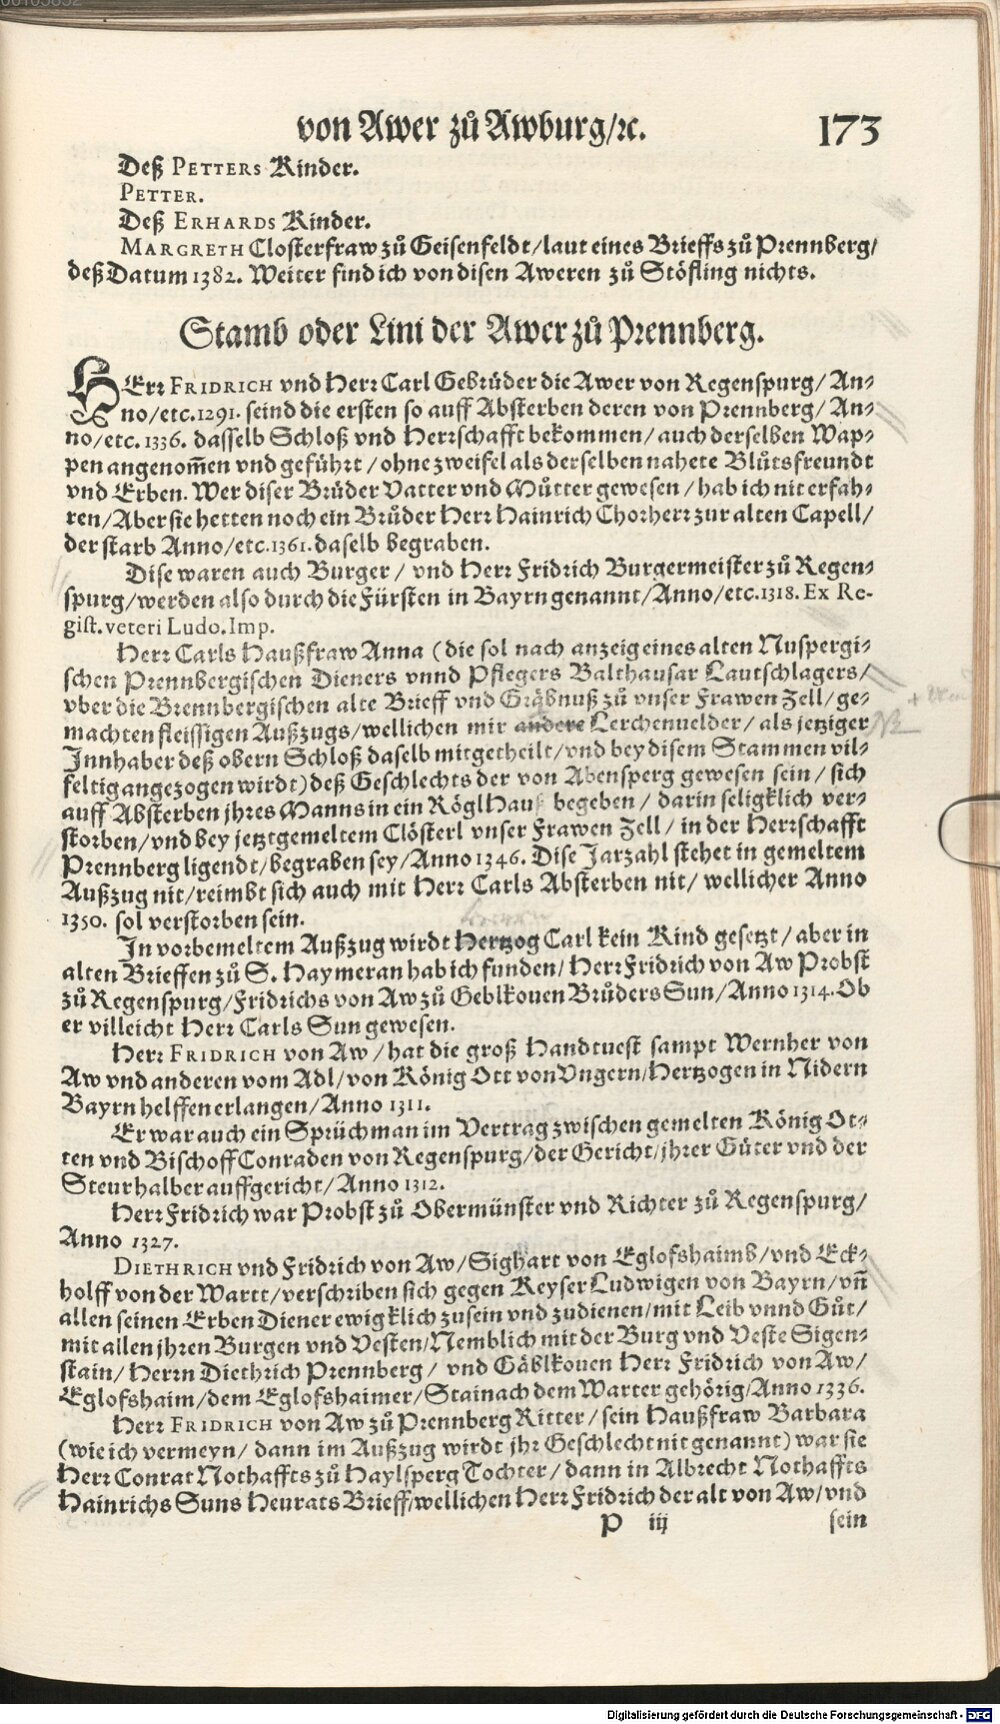 von Awer zů Awburg/ꝛc. 173
Deß PETTERS Kinder.
PETTER.
Deß ERHARDS Kinder.
MARGRETH Closterfraw zů Geisenfeldt/laut eines Brieffs zů Prennberg/
deß Datum 1382. Weiter find ich von disen Aweren zů Stöfling nichts.
Stamb oder Lini der Awer zů Prennberg.
HErr FRIDRICH vnd Herr Carl Gebrüder die Awer von Regenspurg/ An-
no/etc.1291. seind die ersten so auff Absterben deren von Prennberg/ An-
no/etc.1336. dasselb Schloß vnd Herrschafft bekommen/auch derselben Wap-
pen angenom̃en vnd geführt/ohne zweifel als derselben nahete Blůtsfreundt
vnd Erben. Wer diser Brüder Vatter vnd Můtter gewesen/hab ich nit erfah-
ren/Aber sie hetten noch ein Brůder Herr Hainrich Chorherr zur alten Capell/
der starb Anno/etc.1361. daselb begraben.
Dise waren auch Burger/ vnd Herr Fridrich Burgermeister zů Regen-
spurg/werden also durch die Fürsten in Bayrn genannt/Anno/etc.1318. Ex Re-
gist. veteri Ludo. Imp.
Herr Carls Haußfraw Anna (die sol nach anzeig eines alten Nuspergi-
schen Prennbergischen Dieners vnnd Pflegers Balthausar Lautschlagers/
vber die Brennbergischen alte Brieff vnd Gräbnuß zů vnser Frawen Zell/ge-
machten fleissigen Außzugs/wellichen mir andere Lerchenuelder/als jetziger
Innhaber deß obern Schloß daselb mitgetheilt/vnd bey disem Stammen vil-
feltig angezogen wirdt) deß Geschlechts der von Abensperg gewesen sein/sich
auff Absterben jhres Manns in ein Rögl Hauß begeben/ darin seligklich ver-
storben/vnd bey jetztgemeltem Clösterl vnser Frawen Zell/in der Herrschafft
Prennberg ligendt/begraben sey/Anno 1346. Dise Jarzahl stehet in gemeltem
Außzug nit/reimbt sich auch mit Herr Carls Absterben nit/ wellicher Anno
1350. sol verstorben sein.
In vorbemeltem Außzug wirdt Hertzog Carl kein Kind gesetzt/aber in
alten Brieffen zů S. Haymeran hab ich funden/Herr Fridrich von Aw Probst
zů Regenspurg/Fridrichs von Aw zů Geblkouen Brůders Sun/Anno 1314. Ob
er villeicht Herr Carls Sun gewesen.
Herr FRIDRICH von Aw/hat die groß Handtuest sampt Wernher von
Aw vnd anderen vom Adl/von König Ott von Vngern/Hertzogen in Nidern
Bayrn helffen erlangen/Anno 1311.
Er war auch ein Sprüchman im Vertrag zwischen gemelten König Ot-
ten vnd Bischoff Conraden von Regenspurg/der Gericht/jhrer Güter vnd der
Steur halber auffgericht/Anno 1312.
Herr Fridrich war Probst zů Obermünster vnd Richter zů Regenspurg/
Anno 1327.
DIETHRICH vnd Fridrich von Aw/Sighart von Eglofshaimb/vnd Eck-
holff von der Wartt/verschriben sich gegen Keyser Ludwigen von Bayrn/vñ
allen seinen Erben Diener ewigklich zusein vnd zudienen/mit Leib vnnd Gůt/
mit allen jhren Burgen vnd Vesten/Nemblich mit der Burg vnd Veste Sigen-
stain/Herrn Diethrich Prennberg/ vnd Gäblkouen Herr Fridrich von Aw/
Eglofshaim/dem Eglofshaimer/Stainach dem Warter gehörig/Anno 1336.
Herr FRIDRICH von Aw zů Prennberg Ritter/sein Haußfraw Barbara
(wie ich vermeyn/ dann im Außzug wirdt jhr Geschlecht nit genannt) war sie
Herr Conrat Nothaffts zů Haylsperg Tochter/dann in Albrecht Nothaffts
Hainrichs Suns Heurats Brieff/wellichen Herr Fridrich der alt von Aw/vnd
P iij sein
Digitalisierung gefördert durch die Deutsche Forschungsgemeinschaft - DFG